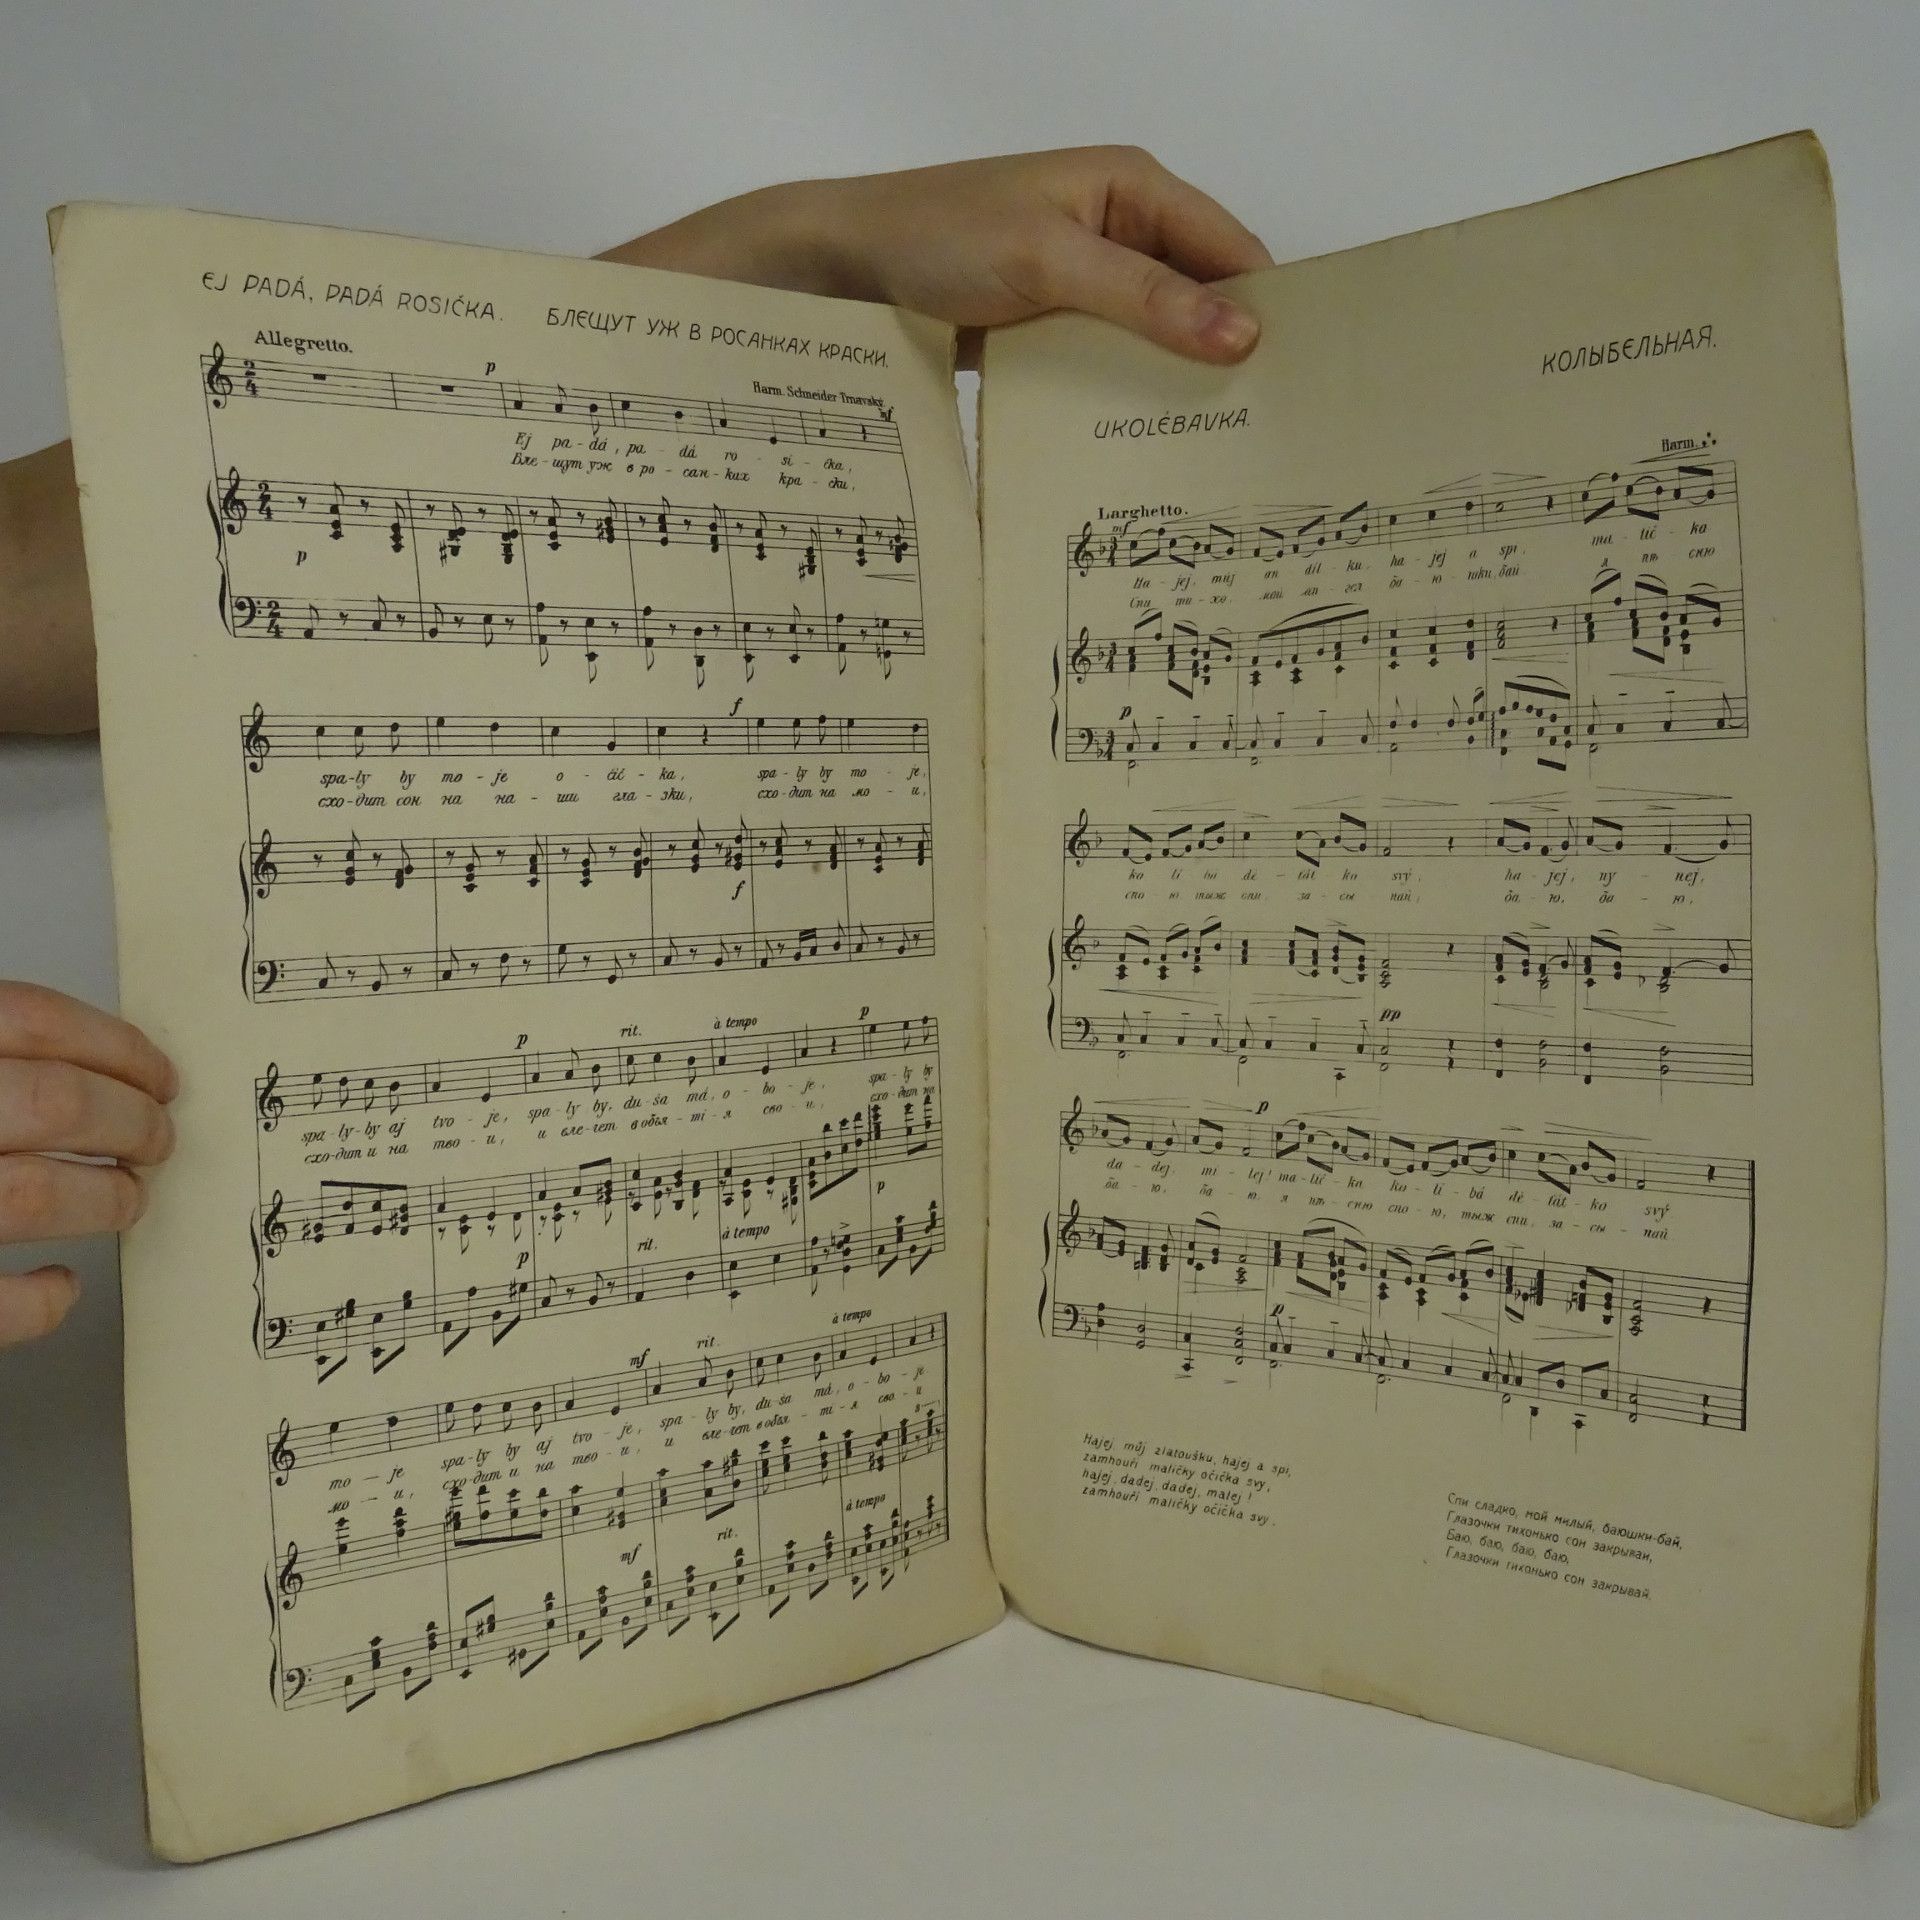 EJ PADÁ, PADÁ ROSIČKA. БЛЕЩУТ УЖ В РОСАНКАХ КРАСКИ.
Allegretto.
Harm. Schneider Trnavský.
p
mf
Ej pa - dá, pa - dá ro - si - čka,
Бле - щут уж в ро - сан - ках кра - ски,
p
f
spa - ly by mo - je o - čič - ka, spa - ly by mo - je,
схо - дит сон на на - ши гла - зки, схо - дит на мо - и,
f
p rit. à tempo p
spa - ly - by aj tvo - je, spa - ly by, du - ša má, o - bo - je, spa - ly by
схо - дит и на тво - и, и вле - чет в объя - ті - я сво - и, схо - дит на
p
p rit. à tempo
mf rit. à tempo
mo - je spa - ly by aj tvo - je, spa - ly by, du - ša má, o - bo - je
мо - и, схо - дит и на тво - и, и вле - чет в объя - ті - я сво - и
8
mf rit. à tempo
UKOLÉBAVKA.
КОЛЫБЕЛЬНАЯ.
Harm.
Larghetto.
mf
Ha - jej, můj an - díl - ku, ha - jej a spi, ma - tič - ka
Спи ти - хо, мой ан - гел, ба - ю - шки, бай я пѣ - сню
p
ko - lí - bá dě - tát - ko svý, ha - jej, ny - nej,
спо - ю, тыж спи, за - сы - пай, ба - ю, ба - ю,
pp
p
da - dej, mi - lej! ma - tič - ka ko - lí - bá dě - tát - ko svý
ба - ю, ба - ю я пѣ - сню спо - ю, тыж спи, за - сы - пай
p
Hajej, můj zlatoušku, hajej a spi,
zamhouři maličky očička svy,
hajej, dadej, dadej, malej!
zamhouři maličky očička svy.
Спи сладко, мой милый, баюшки-бай,
Глазочки тихонько сон закрывай,
Баю, баю, баю, баю,
Глазочки тихонько сон закрывай.